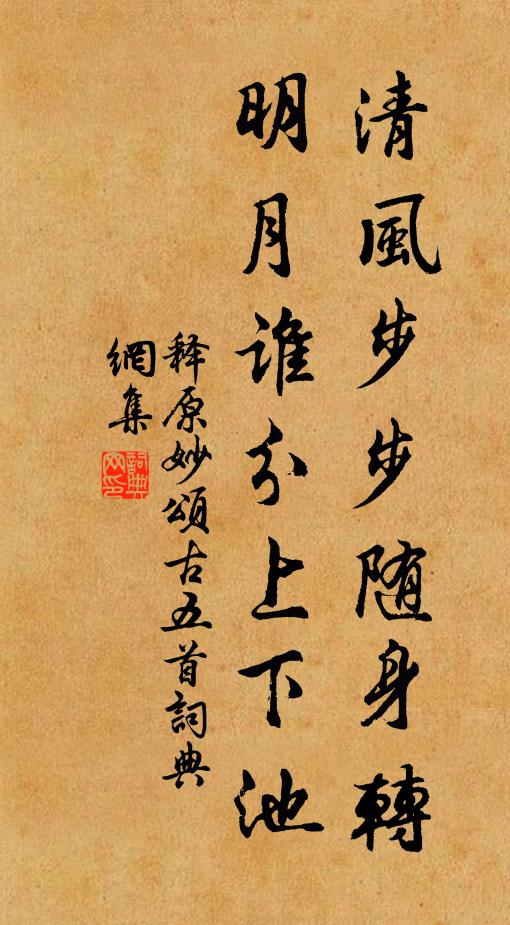 清風步步随身轉
明月誰分上下池
释原妙頌古五首詞典
網集
詞典
网印